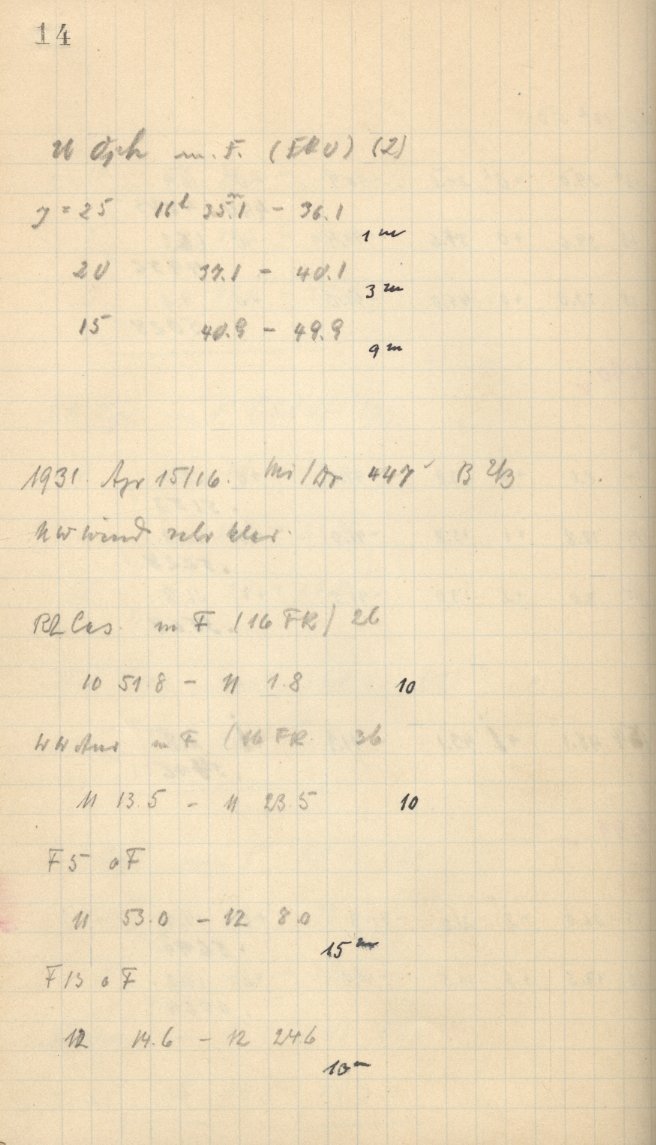 14
U Oph m. F. (2)
y = 25 16h 35.m1 – 36.1
1m
20 37.1 – 40.1
3m
15 40.9 – 49.9
9m
1931 Apr 15/16. Mi/Do 447 B
NW Wind sehr klar.
RZ Cas. m F (16 FR) 2b
10 51.8 – 11 1.8 10
WW Aur m F (16 FR 3b
11 13.5 – 11 23.5 10
F 5 oF
11 53.0 – 12 8.0
15m
F 13 oF
12 14.6 – 12 24.6
10m